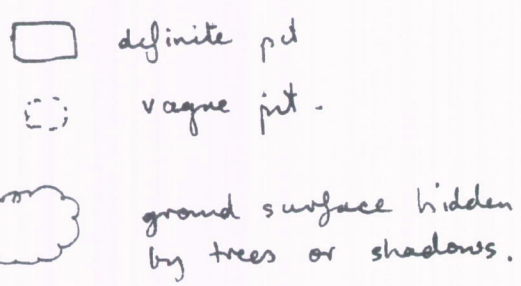 definite pit
vague pit.
ground surface hidden
by trees or shadows.